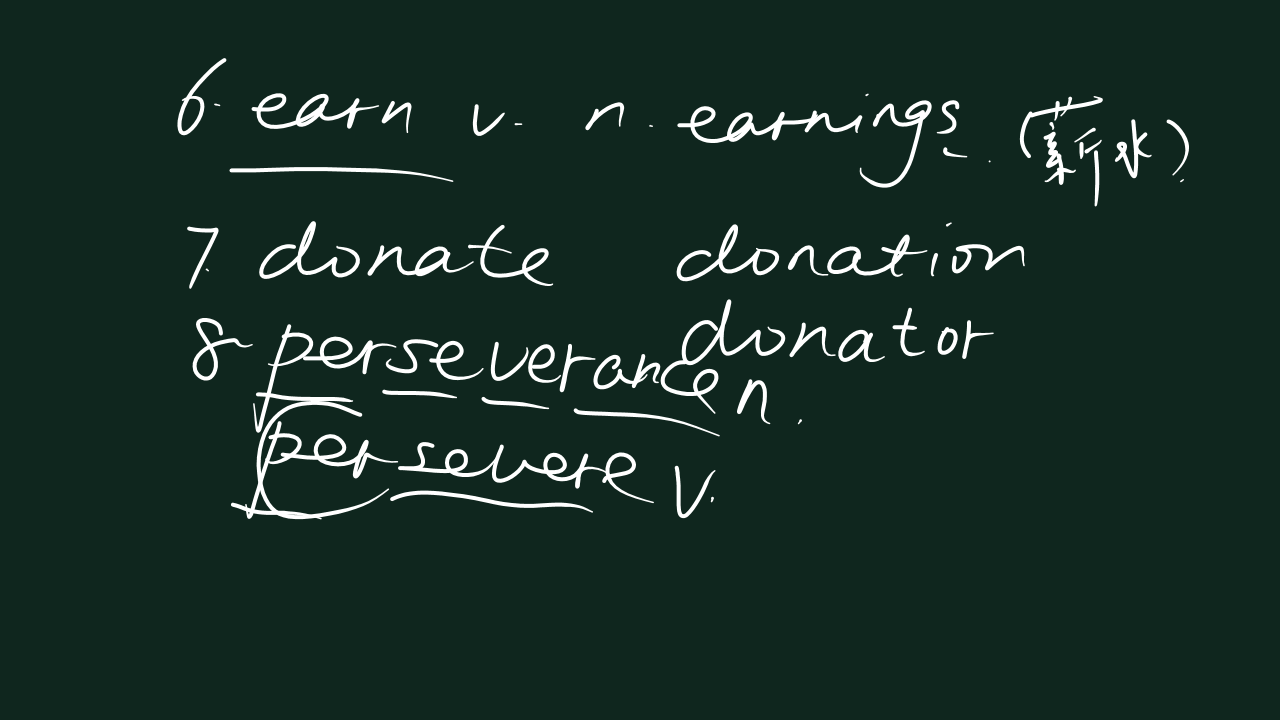 6. earn v. n. earnings. (薪水)
7. donate donation
donator
8. perseverance n.
persevere v.